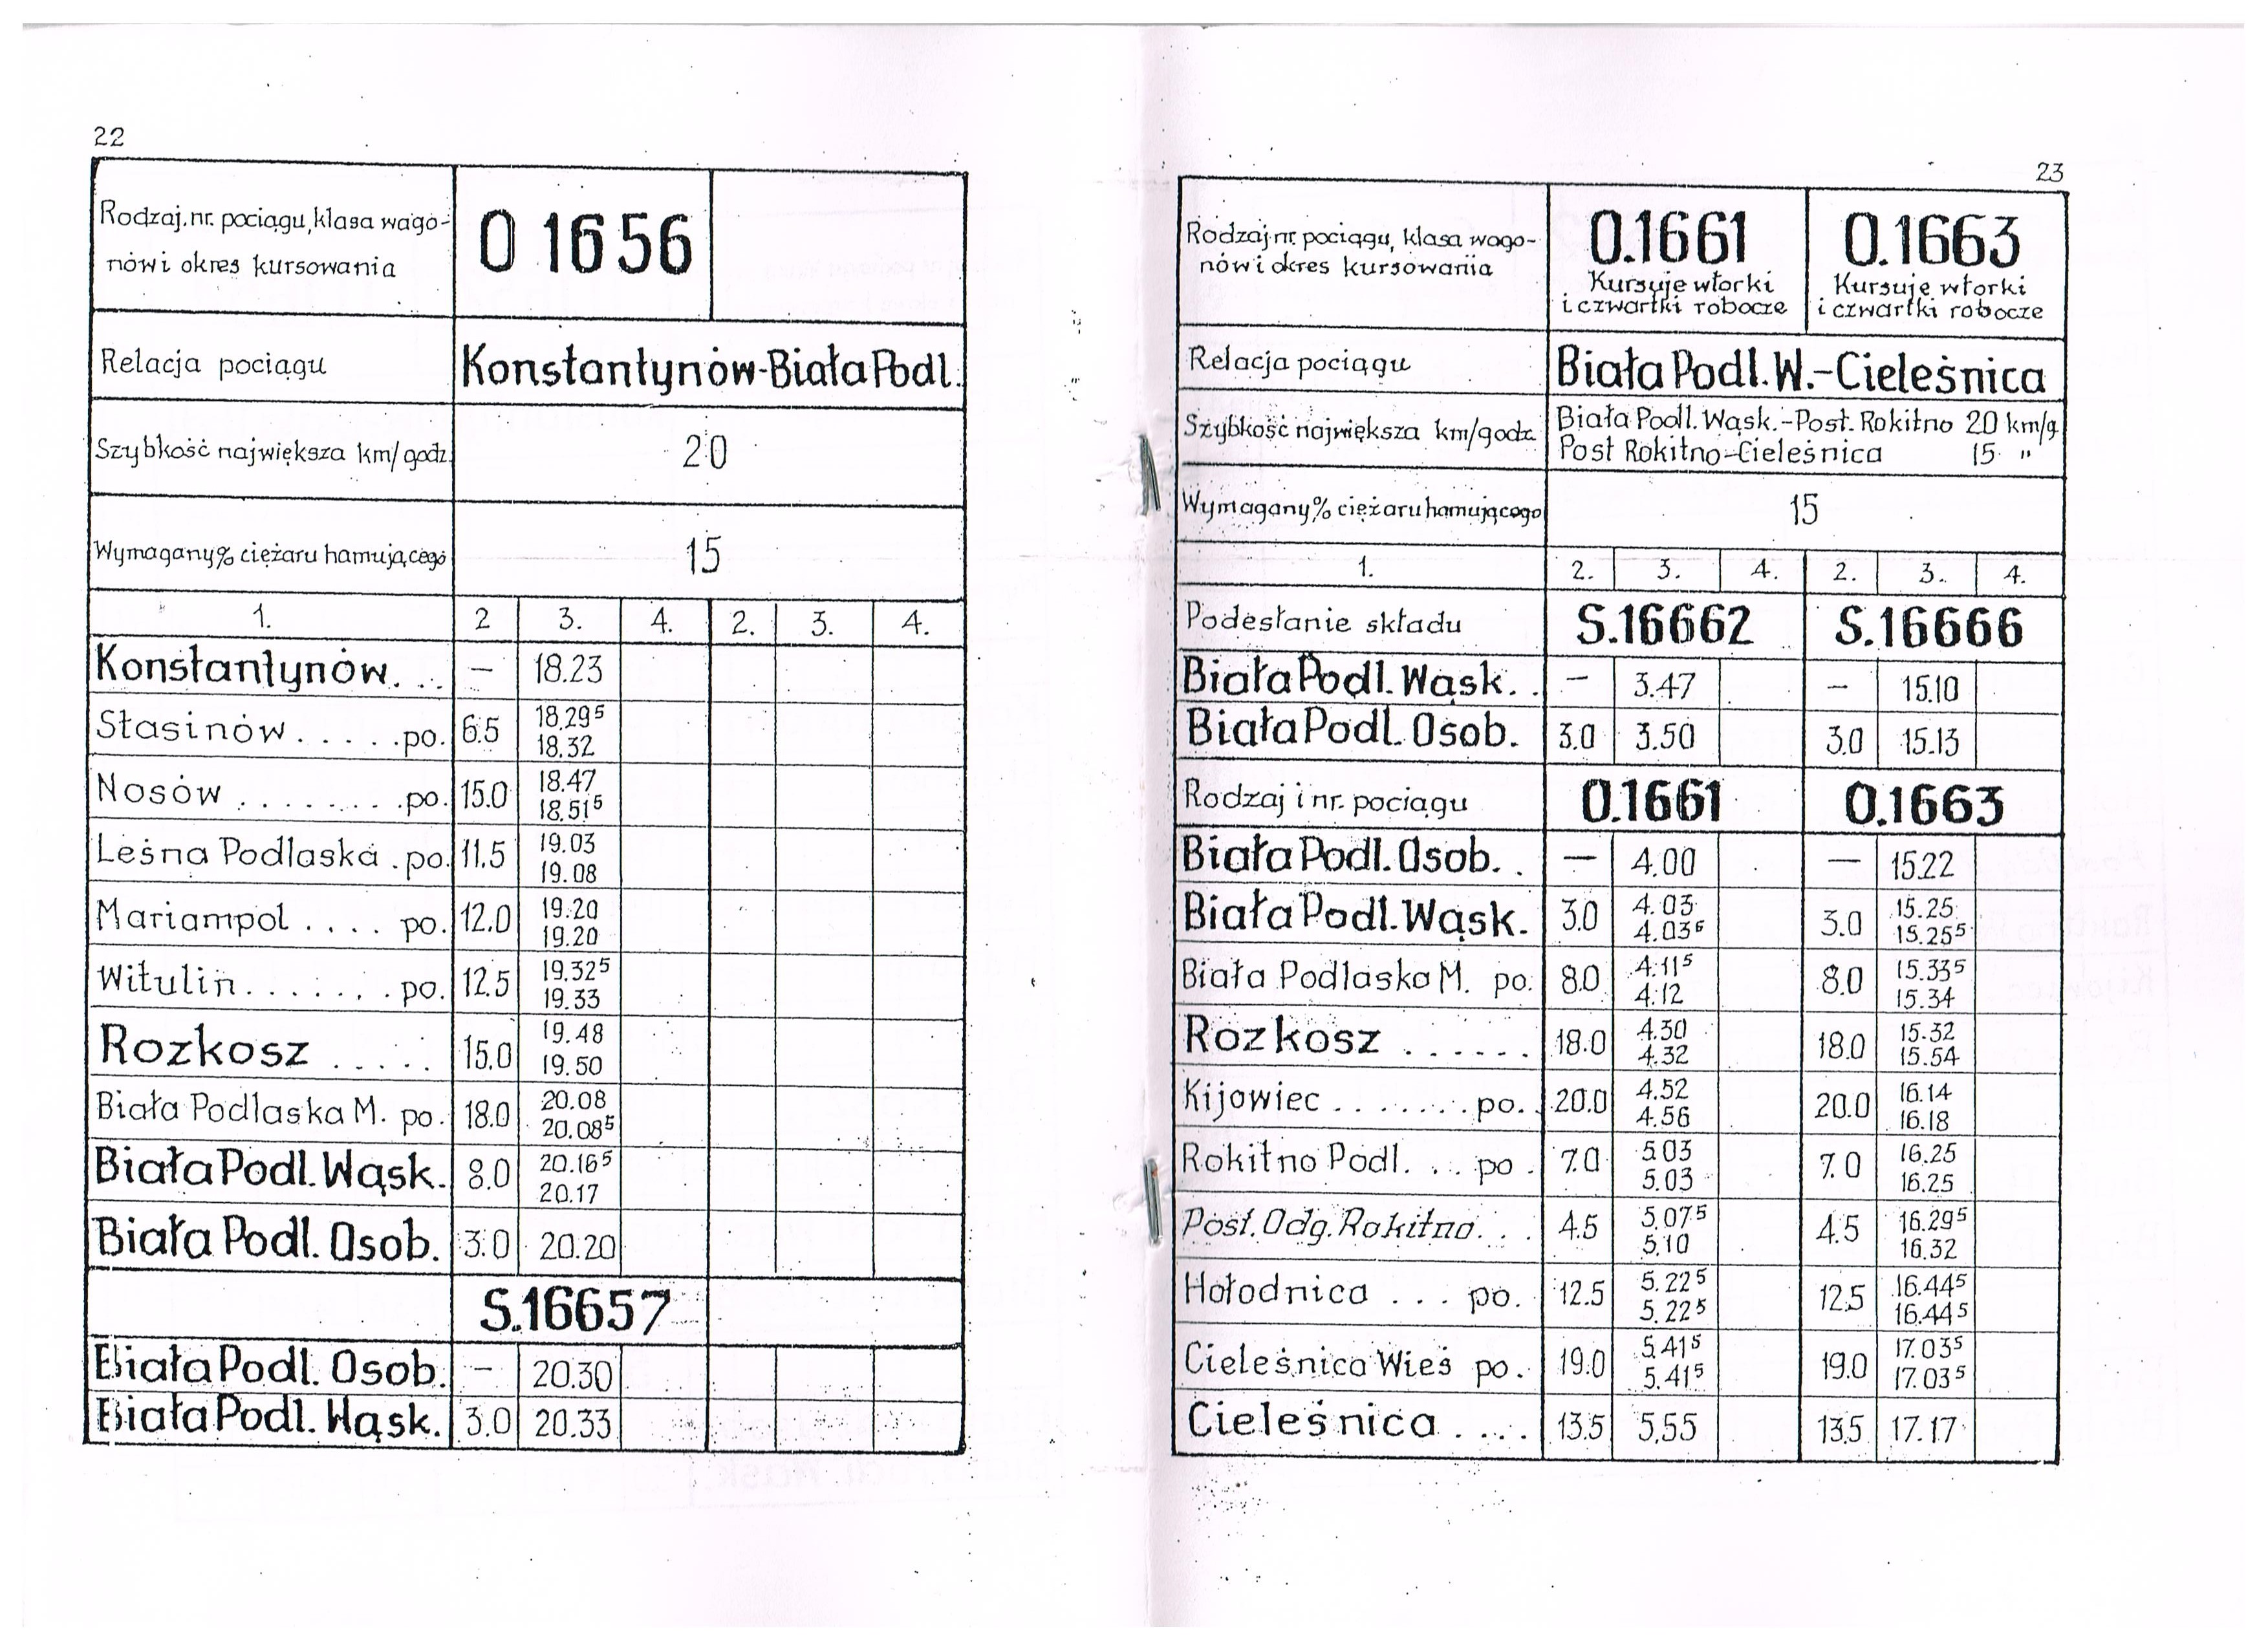 22
Rodzaj.nr. pociągu,klasa wago-
nów i okres kursowania
O 1656
Relacja pociągu
Konstantynów-Biała Podl.
Szybkość największa km/godz.
20
Wymagany % ciężaru hamującego
15
1. 2 3. 4. 2. 3. 4.
Konstantynów. .. — 18.23
Stasinów.....po. 6.5 18.29⁵
18.32
Nosów ........po. 15.0 18.47
18.51⁵
Leśna Podlaska .po. 11.5 19.03
19.08
Mariampol .... po. 12.0 19.20
19.20
Witulin....... po. 12.5 19.32⁵
19.33
Rozkosz ..... 15.0 19.48
19.50
Biała Podlaska M. po. 18.0 20.08
20.08⁵
Biała Podl. Wąsk. 8.0 20.16⁵
20.17
Biała Podl. Osob. 3.0 20.20
S.16657
Biała Podl. Osob. — 20.30
Biała Podl. Wąsk. 3.0 20.33
23
Rodzaj nr. pociągu, klasa wago-
nów i okres kursowania
O.1661
Kursuje wtorki
i czwartki robocze
O.1663
Kursuje wtorki
i czwartki robocze
Relacja pociągu
Biała Podl. W.-Cieleśnica
Szybkość największa km/godz.
Biała Podl. Wąsk.-Post. Rokitno 20 km/g
Post Rokitno-Cieleśnica 15 "
Wymagany % ciężaru hamującego
15
1. 2. 3. 4. 2. 3. 4.
Podesłanie składu S.16662 S.16666
Biała Podl. Wąsk. . — 3.47 — 15.10
Biała Podl. Osob. 3.0 3.50 3.0 15.13
Rodzaj i nr. pociągu O.1661 O.1663
Biała Podl. Osob. . — 4.00 — 15.22
Biała Podl. Wąsk. 3.0 4.03 3.0 15.25
4.03⁶ 15.25⁵
Biała Podlaska M. po. 8.0 4.11⁵ 8.0 15.33⁵
4.12 15.34
Rozkosz ...... 18.0 4.30 18.0 15.32
4.32 15.54
Kijowiec ....... po. 20.0 4.52 20.0 16.14
4.56 16.18
Rokitno Podl. ... po . 7.0 5.03 7.0 16.25
5.03 16.25
Post. Odg. Rokitno. . . 4.5 5.07⁵ 4.5 16.29⁵
5.10 16.32
Hołodnica ... po. 12.5 5.22⁵ 12.5 16.44⁵
5.22⁵ 16.44⁵
Cieleśnica Wieś po. 19.0 5.41⁵ 19.0 17.03⁵
5.41⁵ 17.03⁵
Cieleśnica .... 13.5 5,55 13.5 17.17